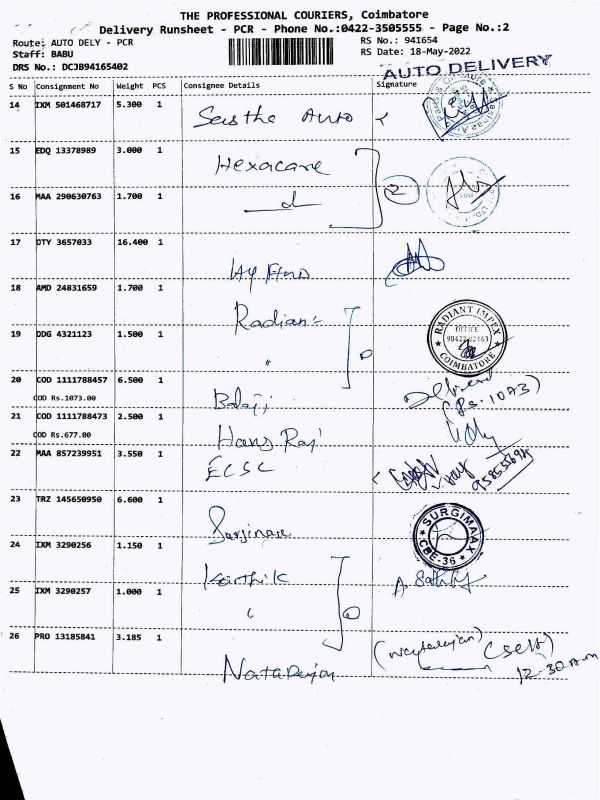 THE PROFESSIONAL COURIERS, Coimbatore
Delivery Runsheet - PCR - Phone No.:0422-3505555 - Page No.:2
Route: AUTO DELY - PCR RS No.: 941654
Staff: BABU RS Date: 18-May-2022
DRS No.: DCJB94165402 AUTO DELIVERY
S No Consignment No Weight PCS Consignee Details Signature
14 IXM 501468717 5.300 1 Auto
15 EDQ 13378989 3.000 1 Hexacare
16 MAA 290630763 1.700 1 2
17 OTY 3657033 16.400 1
18 AMD 24831659 1.700 1 Radian
RADIANT IMPEX
OFFICE
COIMBATORE
19 DDG 4321123 1.500 1 "
20 COD 1111788457 6.500 1 Balaji
COD Rs.1073.00 (Rs. 1073)
21 COD 1111788473 2.500 1 Hans Raj
COD Rs.677.00
22 MAA 857239951 3.550 1 ECSC
23 TRZ 145650950 6.600 1
SURGIMAAX
CBE-36
24 IXM 3290256 1.150 1 Karthik
25 IXM 3290257 1.000 1 "
26 PRO 13185841 3.185 1 Natarajan (Natarajan) (self)
12-30 A.M